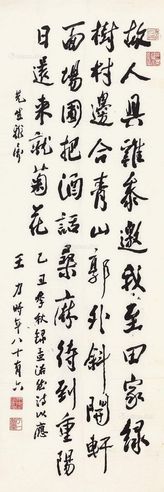 故人具雞黍邀我至田家綠
樹村邊合青山郭外斜開軒
面場圃把酒話桑麻待到重陽
日還來就菊花 乙丑季秋錄孟浩然詩以應
先生雅屬 王力時年八十有六